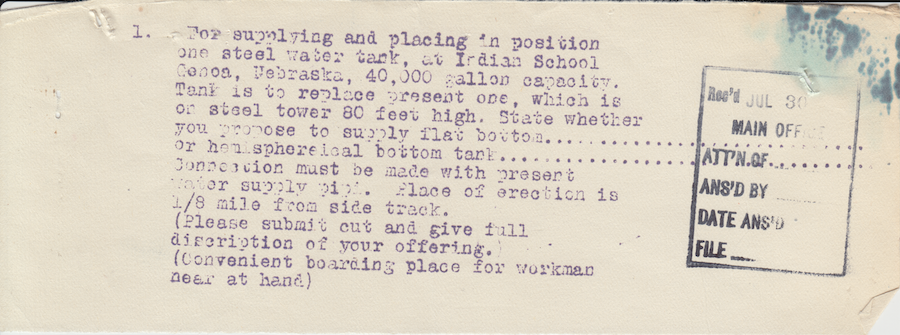 1. For supplying and placing in position
one steel water tank, at Indian School
Genoa, Nebraska, 40,000 gallon capacity.
Tank is to replace present one, which is
on steel tower 80 feet high. State whether
you propose to supply flat bottom..............................
or hemisphereical bottom tank..............................
Connection must be made with present
water supply pipe. Place of erection is
1/8 mile from side track.
(Please submit cut and give full
discription of your offering.)
(Convenient boarding place for workman
near at hand)
Rec'd JUL 30
MAIN OFFICE
ATT'N.OF
ANS'D BY
DATE ANS'D
FILE